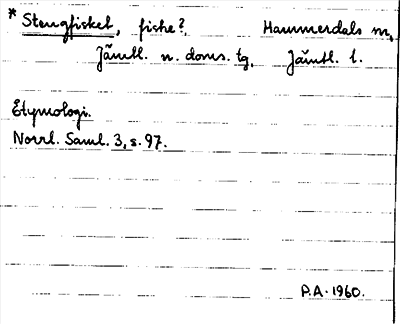 * Stengfisket, fiske? Hammerdals sn,
Jämtl. n. doms. tg, Jämtl. l.
Etymologi.
Norrl. Saml. 3, s. 97.
P.A. 1960.